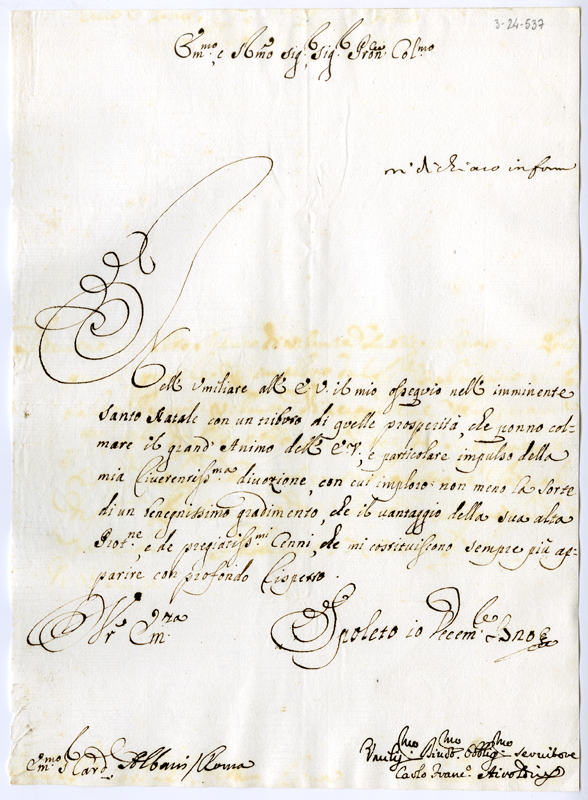 3-24-537
Em.mo e R.mo Sig.r Sig.r Pron. Col.mo
Nell' umiliare all' E.V. il mio ossequio nell' imminente
Santo Natale con un tributo di quelle prosperità, che ponno col-
mare il grand' Animo dell' E.V., è particolare impulso della
mia riverentiss.ma divozione, con cui imploro non meno la sorte
di un benegnissimo gradimento, che il vantaggio della sua alta
Prot.ne, e de pregiatiss.mi Cenni, che mi costituiscono sempre più ap-
parire con profondo rispetto.
Di V.ra Em.za
Spoleto 10 Decem.
Em.mo Card. Albani / Roma
Umil.mo Divot.mo Obblig.mo Servitore
Carlo Franc.o